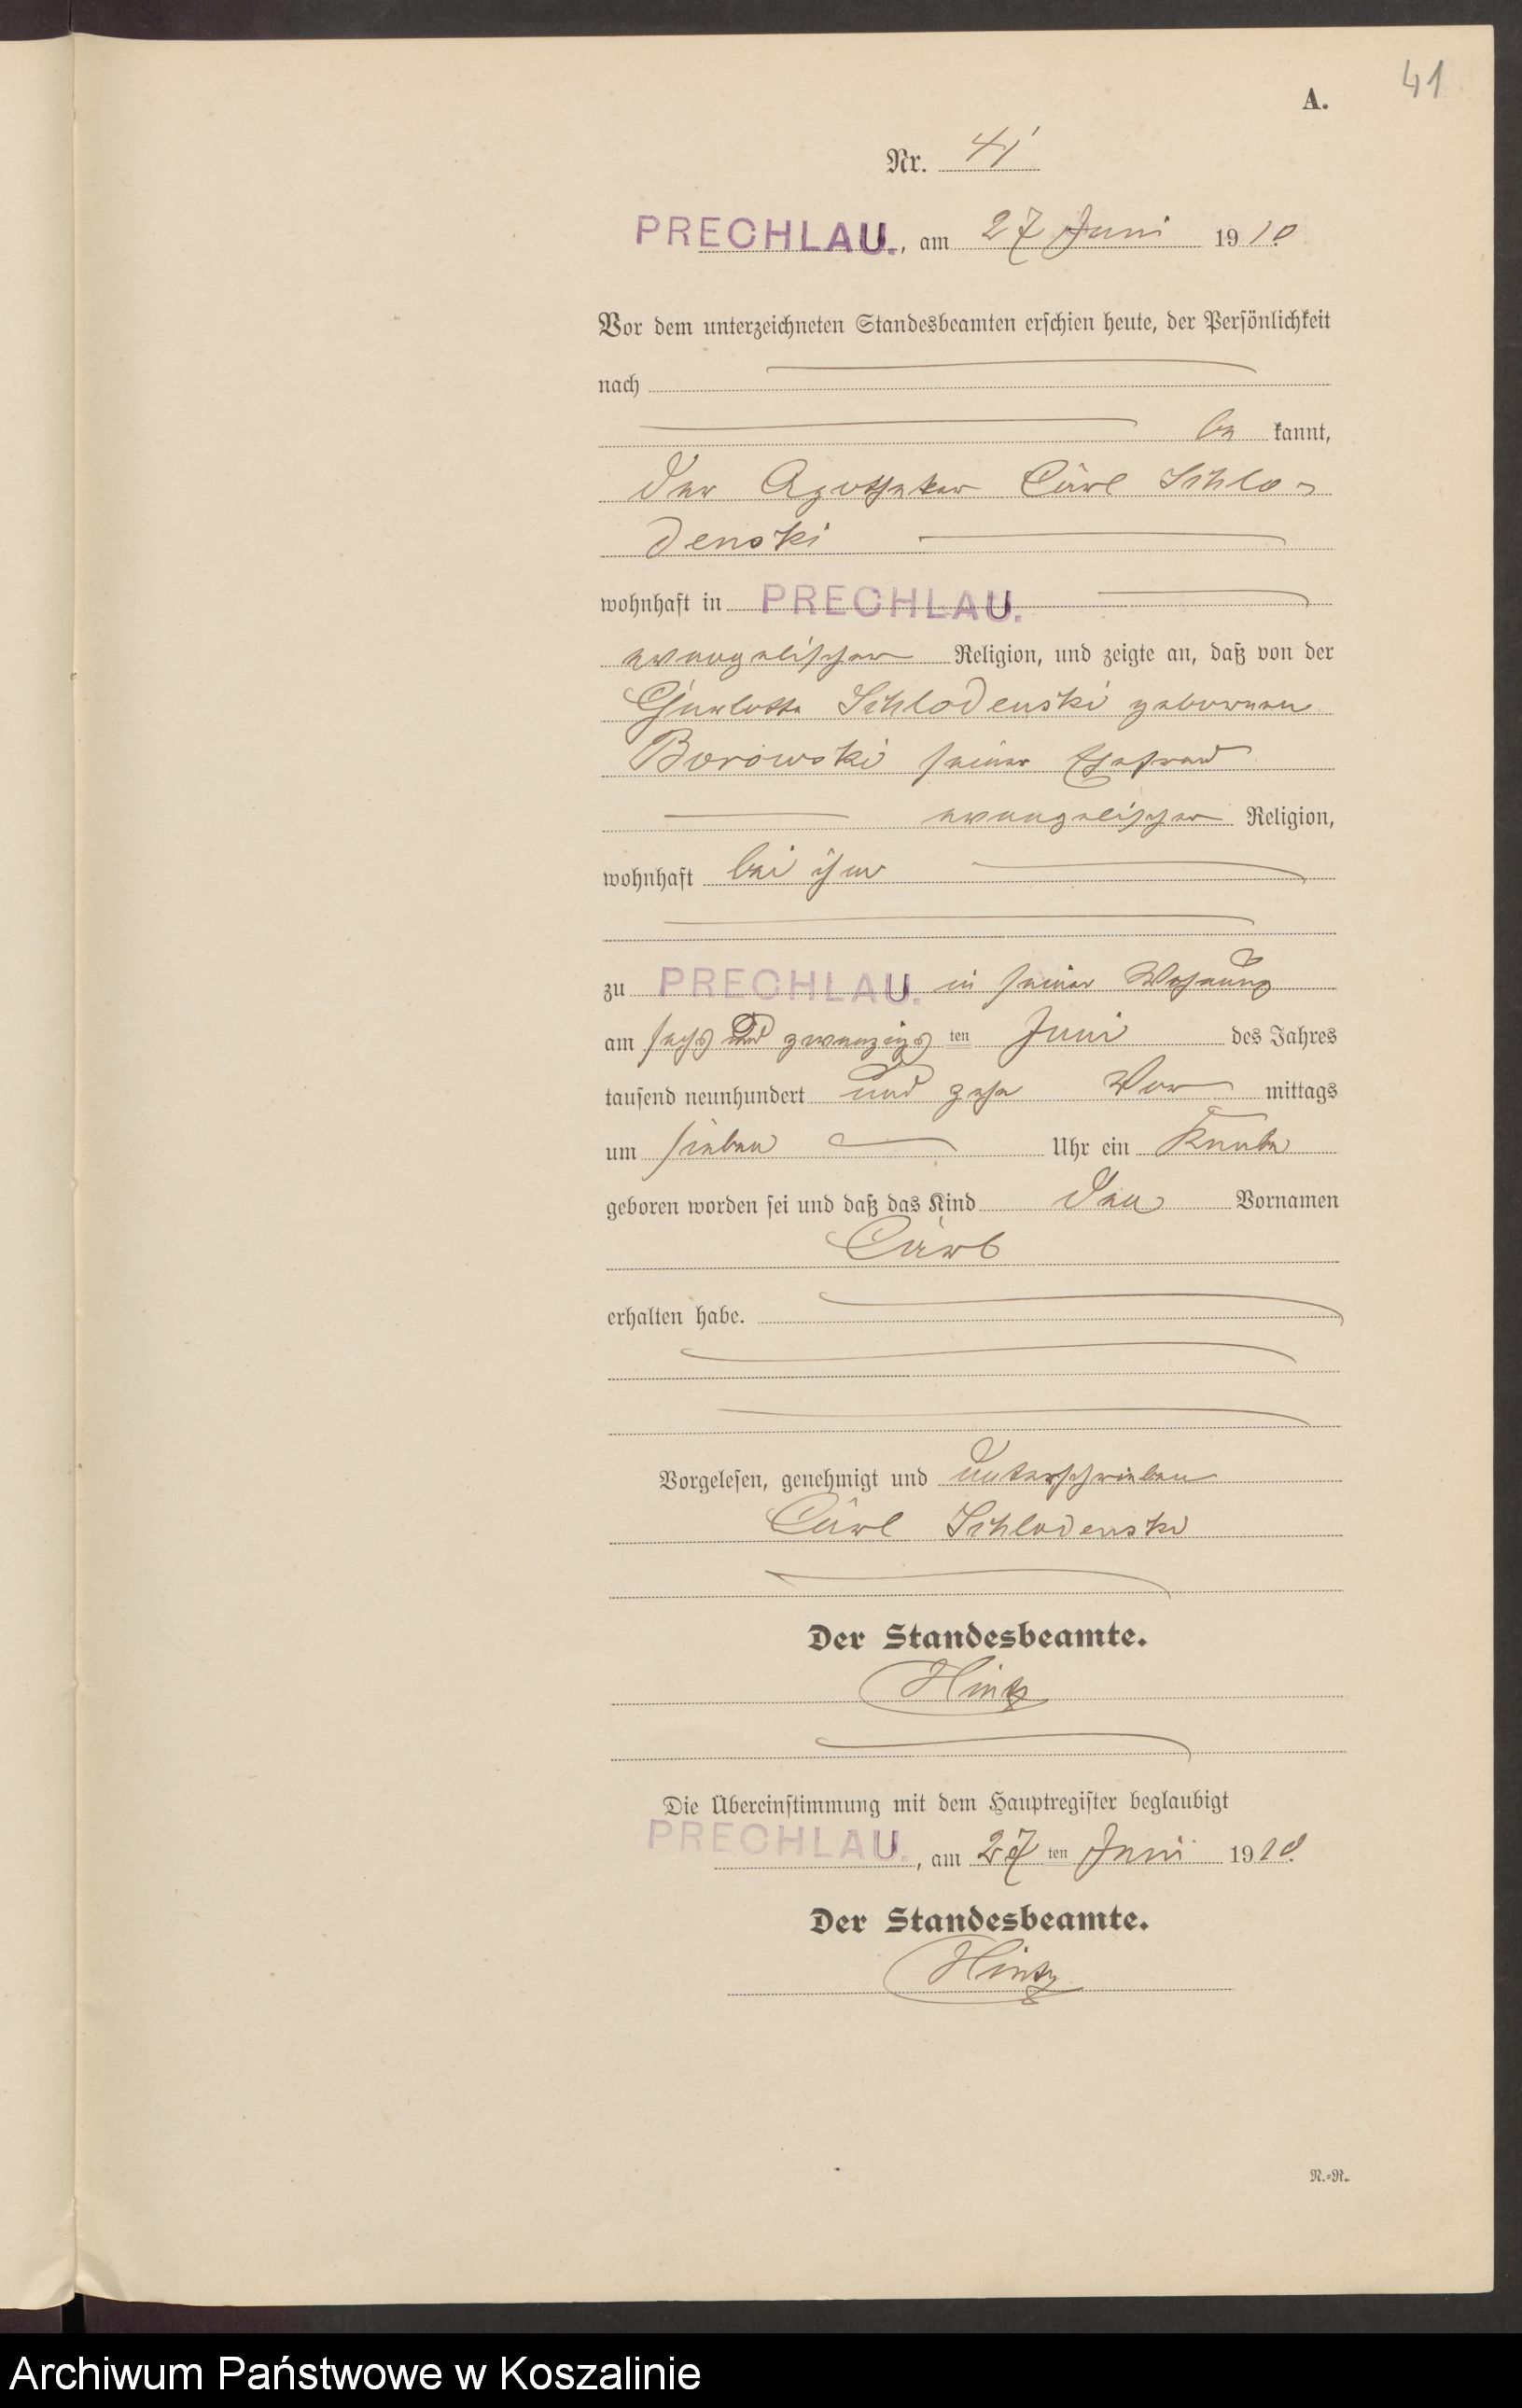 41
A.
Nr. 41
PRECHLAU., am 27 Juni 1910
Vor dem unterzeichneten Standesbeamten erschien heute, der Persönlichkeit
nach
be kannt,
der Apotheker Curt Schlo-
denski
wohnhaft in PRECHLAU.
evangelischer Religion, und zeigte an, daß von der
Schlodenski geborenen
Borowski seiner Ehefrau
evangelischer Religion,
wohnhaft bei ihm
zu PRECHLAU. in seiner Wohnung
am sechs und zwanzigs ten Juni des Jahres
tausend neunhundert und zehn Vor mittags
um sieben Uhr ein Knabe
geboren worden sei und daß das Kind den Vornamen
Curt
erhalten habe.
Vorgelesen, genehmigt und unterschrieben
Schlodenski
Der Standesbeamte.
Hintz
Die Übereinstimmung mit dem Hauptregister beglaubigt
PRECHLAU., am 27 ten Juni 1910.
Der Standesbeamte.
Hintz
N.=R.
Archiwum Państwowe w Koszalinie